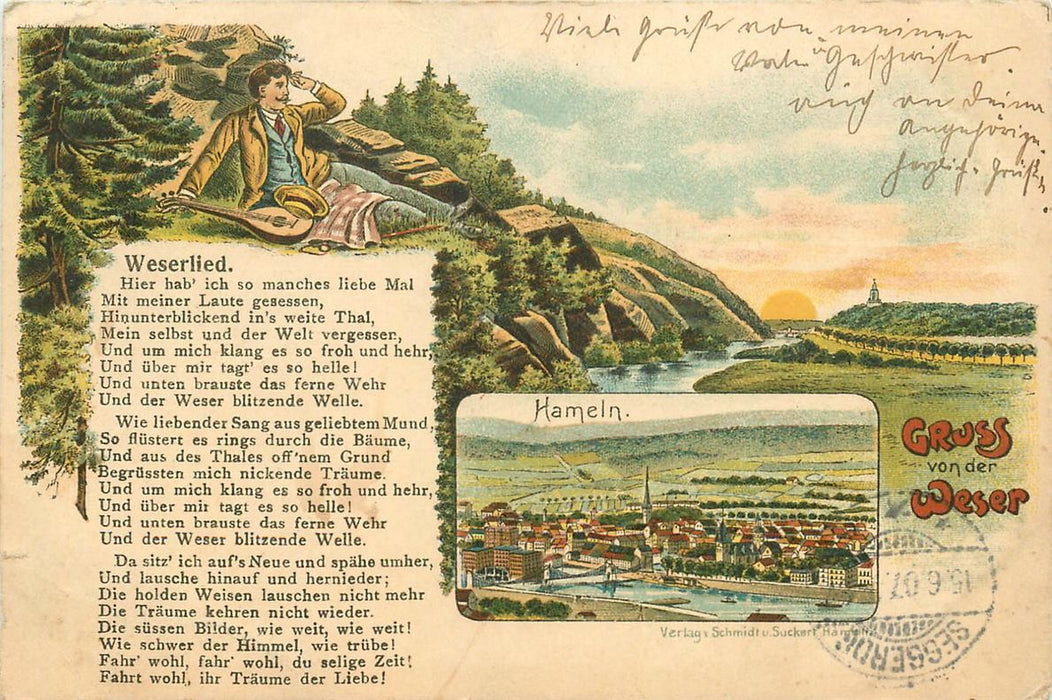 Viele Grüße von meinen
Vater u Geschwister.
auch an Deine
Angehörige.
herzlich. Grüße
Weserlied.
Hier hab' ich so manches liebe Mal
Mit meiner Laute gesessen,
Hinunterblickend in's weite Thal,
Mein selbst und der Welt vergessen,
Und um mich klang es so froh und hehr,
Und über mir tagt' es so helle!
Und unten brauste das ferne Wehr
Und der Weser blitzende Welle.
Wie liebender Sang aus geliebtem Mund,
So flüstert es rings durch die Bäume,
Und aus des Thales off'nem Grund
Begrüssten mich nickende Träume.
Und um mich klang es so froh und hehr,
Und über mir tagt es so helle!
Und unten brauste das ferne Wehr
Und der Weser blitzende Welle.
Da sitz' ich auf's Neue und spähe umher,
Und lausche hinauf und hernieder;
Die holden Weisen lauschen nicht mehr
Die Träume kehren nicht wieder.
Die süssen Bilder, wie weit, wie weit!
Wie schwer der Himmel, wie trübe!
Fahr' wohl, fahr' wohl, du selige Zeit!
Fahrt wohl, ihr Träume der Liebe!
Hameln.
Gruss
von der
Weser
Verlag v Schmidt u. Suckert, Hameln
15.6.07